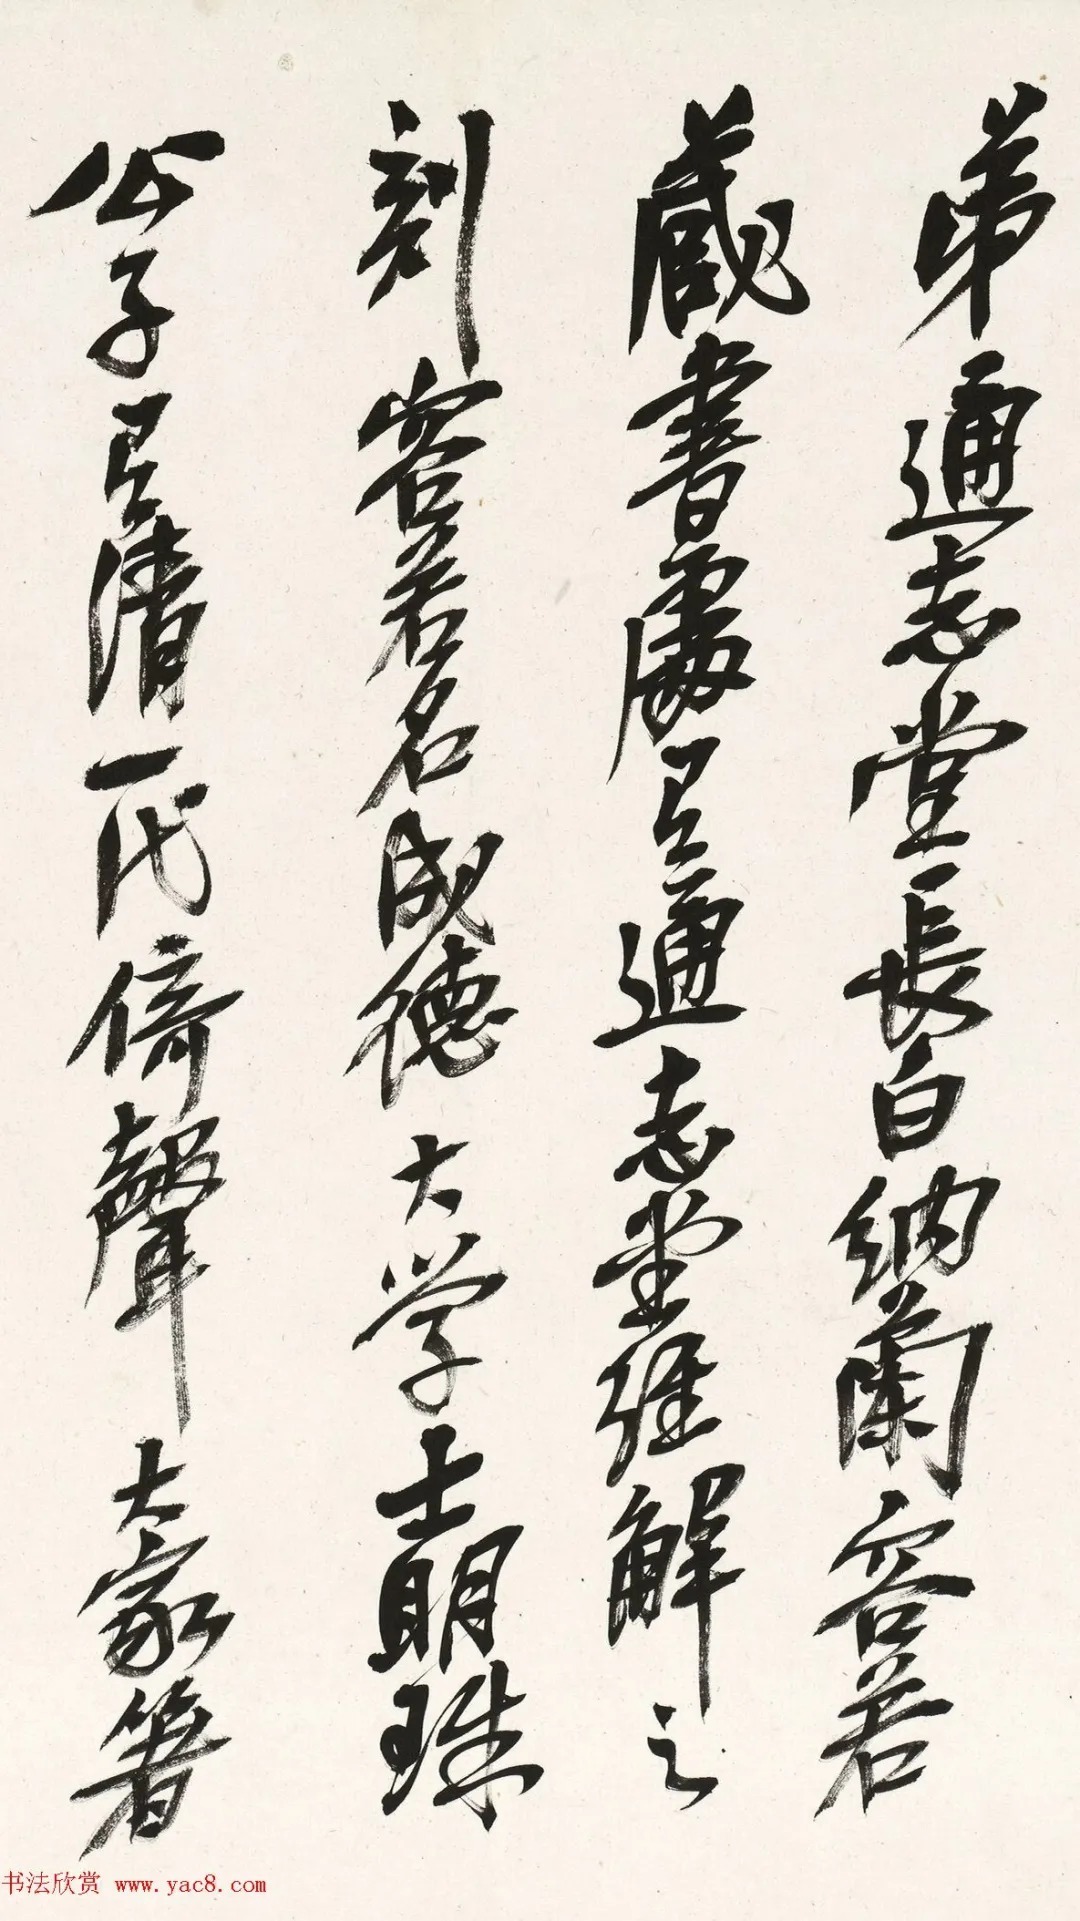 弟通志堂長白納蘭容若
藏書處有通志堂經解之
刻容若名成德大学士明珠
公子有清一代倚聲大家著
书法欣赏 www.yac8.com